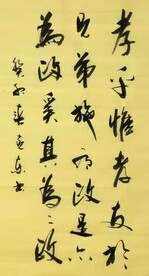 孝乎惟孝友於
兄弟施政是亦
為政奚其為〻政
癸卯春書